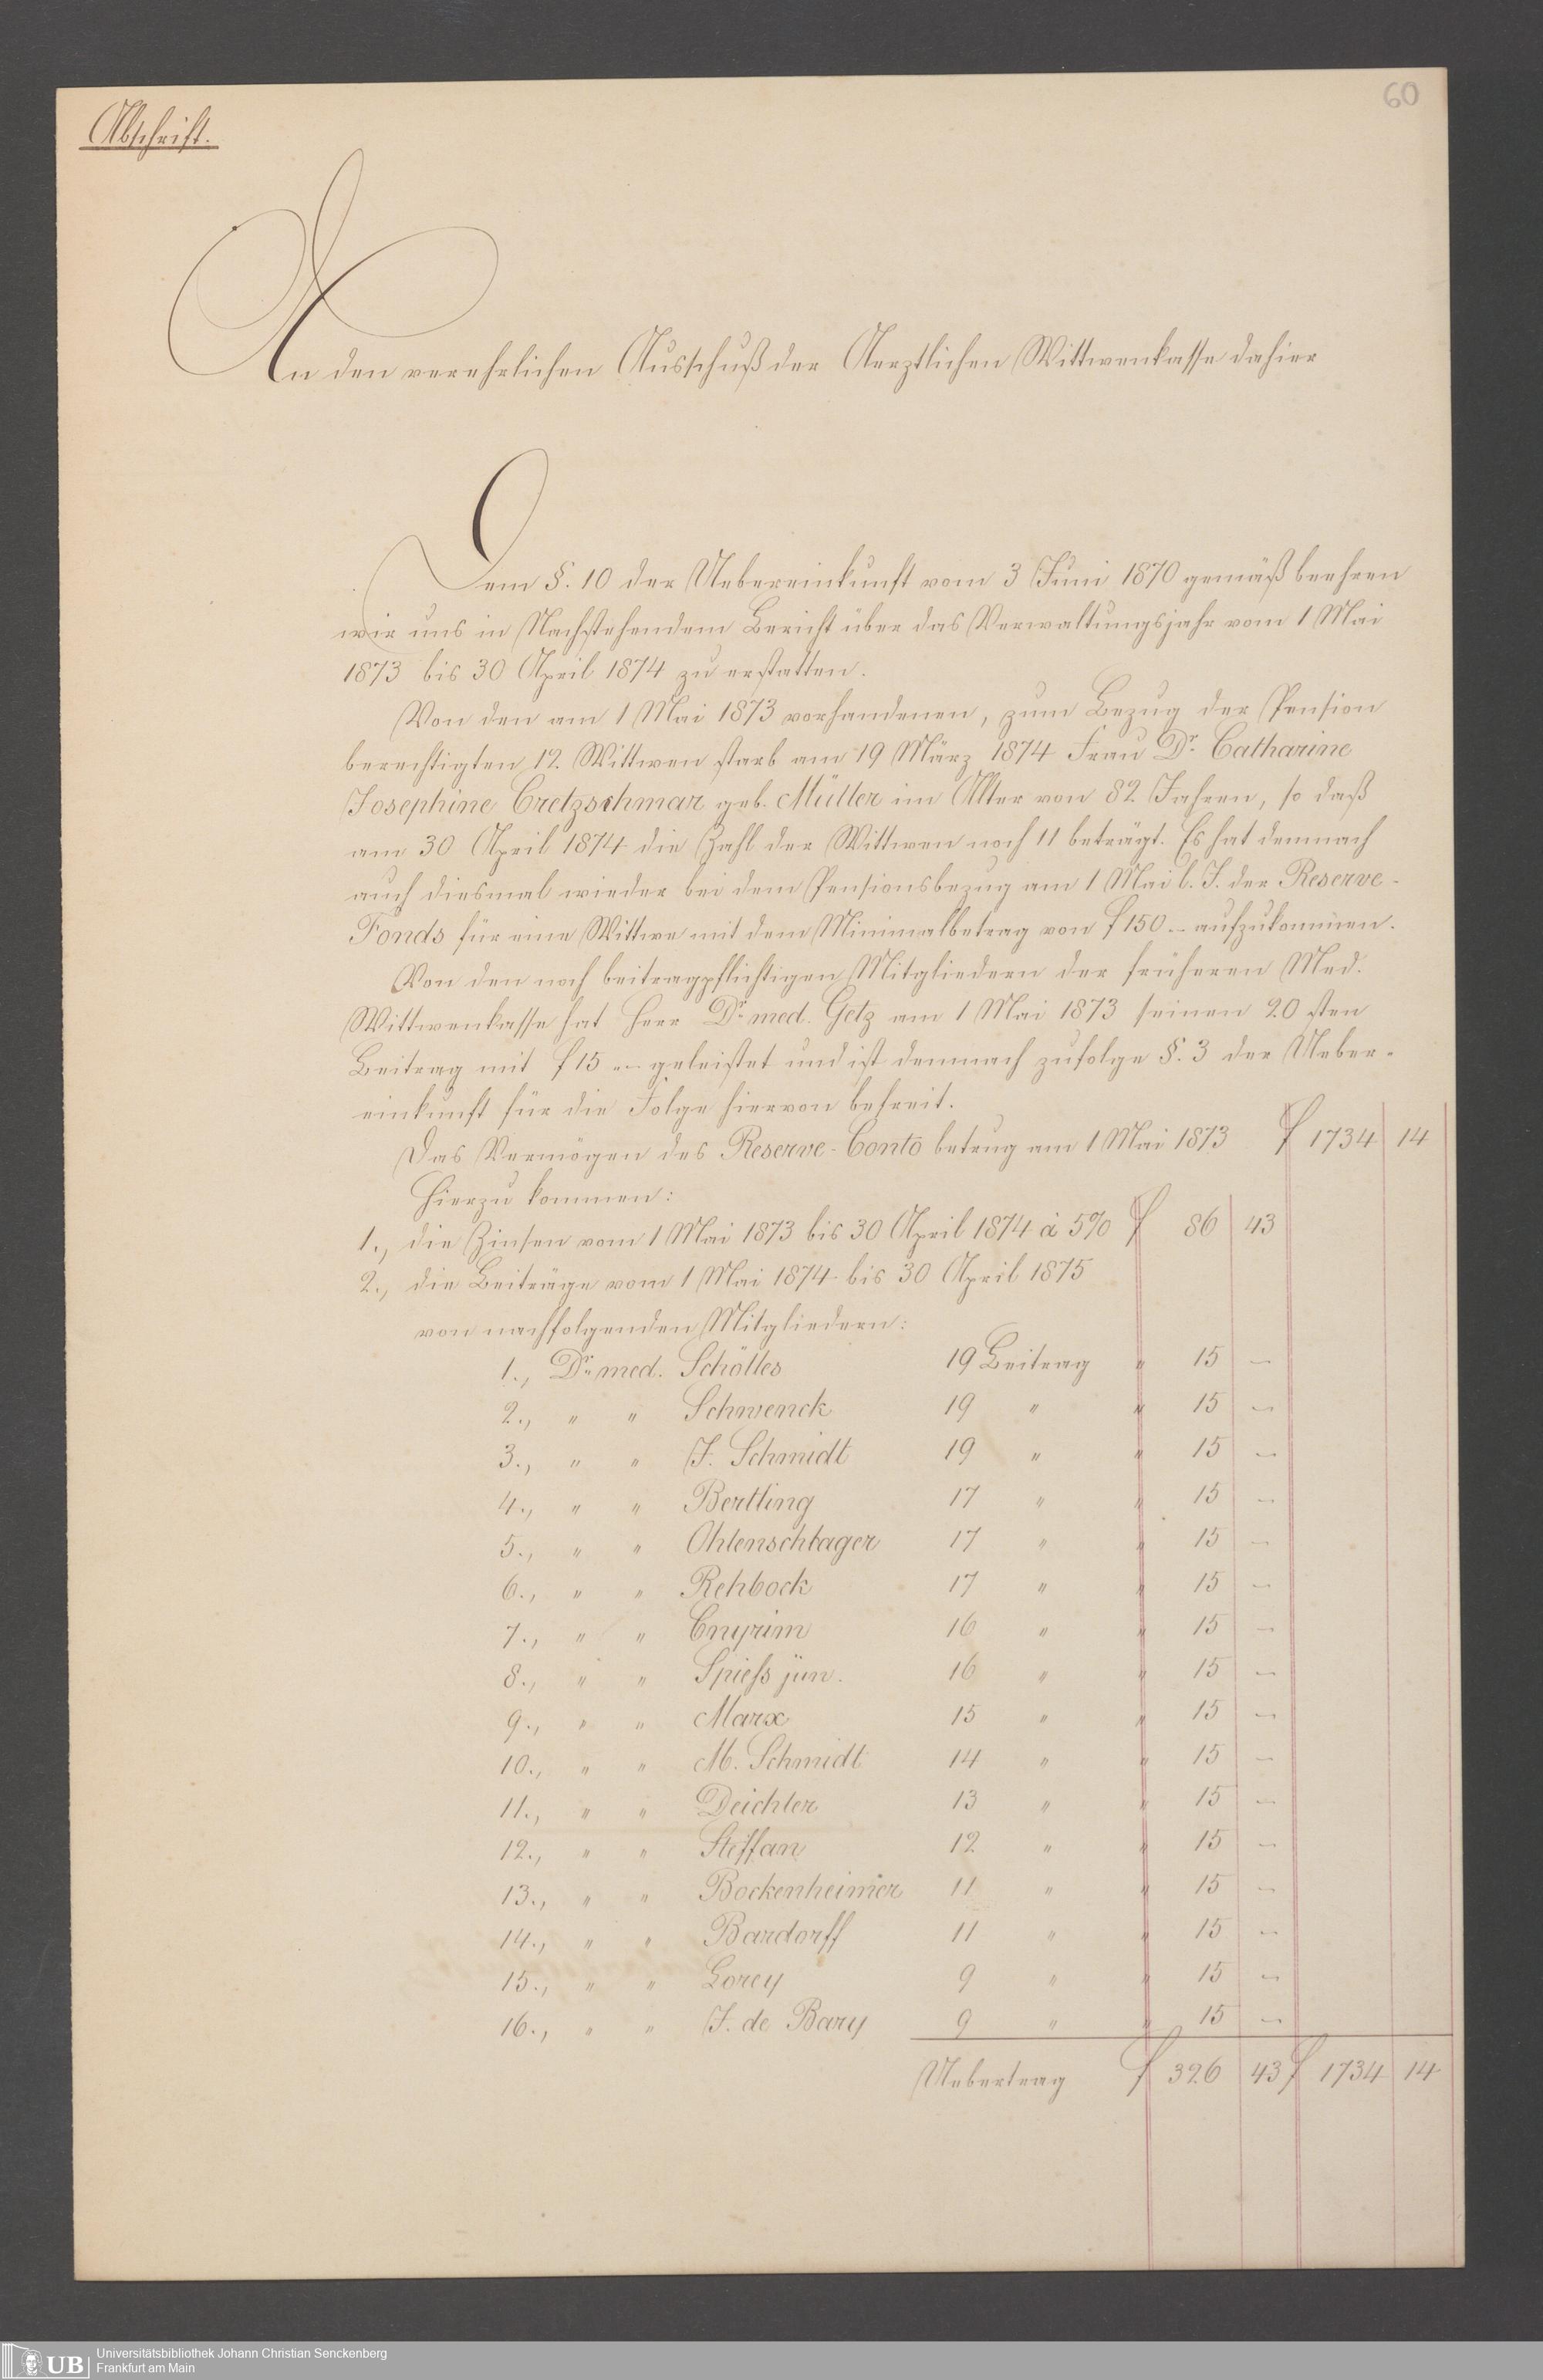 60
Abschrift.
An den verehrlichen Ausschuß der Aerztlichen Wittwenkasse dahier
Dem §. 10 der Uebereinkunft vom 3 Juni 1870 gemäß beehren
wir uns in Nachstehendem Bericht über das Verwaltungsjahr vom 1 Mai
1873 bis 30 April 1874 zu erstatten.
Von den am 1 Mai 1873 vorhandenen, zum Bezug der Pension
berechtigten 12 Wittwen starb am 19 März 1874 Frau Dr. Catharine
Josephine Cretzschmar geb. Müller im Alter von 82 Jahren, so daß
am 30 April 1874 die Zahl der Wittwen noch 11 beträgt. Es hat demnach
auch diesmal wieder bei dem Pensionsbezug am 1 Mai l. J. der Reserve-
Fonds für eine Wittwe mit dem Minimalbetrag von f 150 – aufzukommen.
Von den noch beitragpflichtigen Mitgliedern der früheren Med.
Wittwenkasse hat Herr Dr. med. Getz am 1 Mai 1873 seinen 20 sten
Beitrag mit f 15 „– geleistet und ist demnach zufolge §. 3 der Ueber-
einkunft für die Folge hiervon befreit.
Das Vermögen des Reserve-Conto betrug am 1 Mai 1873 f 1734 14
Hierzu kommen:
1., die Zinsen vom 1 Mai 1873 bis 30 April 1874 à 5% f 86 43
2., die Beiträge vom 1 Mai 1874 bis 30 April 1875
von nachfolgenden Mitgliedern:
1., Dr. med. Schölles 19 Beitrag " 15 –
2., " " Schwenck 19 " " 15 –
3., " " J. Schmidt 19 " " 15 –
4., " " Bertling 17 " " 15 –
5., " " Ohlenschlager 17 " " 15 –
6., " " Rehbock 17 " " 15 –
7., " " Cnyrim 16 " " 15 –
8., " " Spiess jun. 16 " " 15 –
9., " " Marx 15 " " 15 –
10., " " M. Schmidt 14 " " 15 –
11., " " Deichler 13 " " 15 –
12., " " Steffan 12 " " 15 –
13., " " Bockenheimer 11 " " 15 –
14., " " Bardorff 11 " " 15 –
15., " " Lorey 9 " " 15 –
16., " " J. de Bary 9 " " 15 –
Uebertrag f 326 43 f 1734 14
UB Universitätsbibliothek Johann Christian Senckenberg
Frankfurt am Main